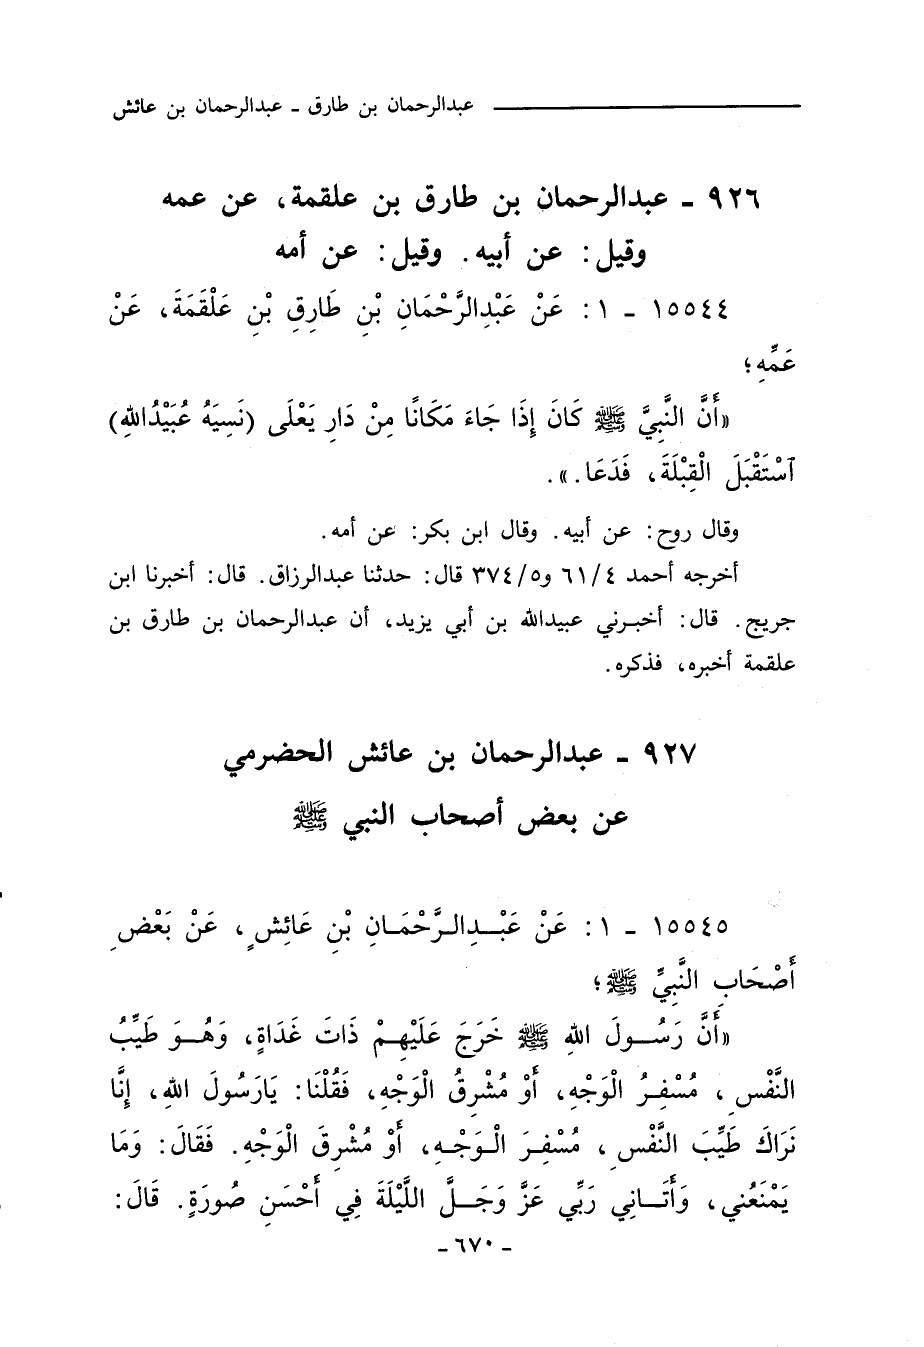 عبدالرحمان بن طارق ـ عبدالرحمان بن عائش
٩٢٦ ـ عبدالرحمان بن طارق بن علقمة، عن عمه
وقيل: عن أبيه. وقيل: عن أمه
١٥٥٤٤ ـ ١: عَنْ عَبْدِالرَّحْمَانِ بْنِ طَارِقِ بْنِ عَلْقَمَةَ، عَنْ
عَمِّهِ؛
«أَنَّ النَّبِيَّ ﷺ كَانَ إِذَا جَاءَ مَكَانًا مِنْ دَارِ يَعْلَى (نَسِيَهُ عُبَيْدُاللهِ)
ٱسْتَقْبَلَ الْقِبْلَةَ، فَدَعَا.».
وقال روح: عن أبيه. وقال ابن بكر: عن أمه.
أخرجه أحمد ٦١/٤ و٣٧٤/٥ قال: حدثنا عبدالرزاق. قال: أخبرنا ابن
جريج. قال: أخبرني عبيدالله بن أبي يزيد، أن عبدالرحمان بن طارق بن
علقمة أخبره، فذكره.
٩٢٧ ـ عبدالرحمان بن عائش الحضرمي
عن بعض أصحاب النبي ﷺ
١٥٥٤٥ ـ ١: عَنْ عَبْدِالرَّحْمَانِ بْنِ عَائِشٍ، عَنْ بَعْضِ
أَصْحَابِ النَّبِيِّ ﷺ؛
«أَنَّ رَسُولَ اللهِ ﷺ خَرَجَ عَلَيْهِمْ ذَاتَ غَدَاةٍ، وَهُوَ طَيِّبُ
النَّفْسِ، مُسْفِرُ الْوَجْهِ، أَوْ مُشْرِقُ الْوَجْهِ، فَقُلْنَا: يَارَسُولَ اللهِ، إِنَّا
نَرَاكَ طَيِّبَ النَّفْسِ، مُسْفِرَ الْوَجْهِ، أَوْ مُشْرِقَ الْوَجْهِ. فَقَالَ: وَمَا
يَمْنَعُنِي، وَأَتَانِي رَبِّي عَزَّ وَجَلَّ اللَّيْلَةَ فِي أَحْسَنِ صُورَةٍ. قَالَ:
ـ ٦٧٠ ـ